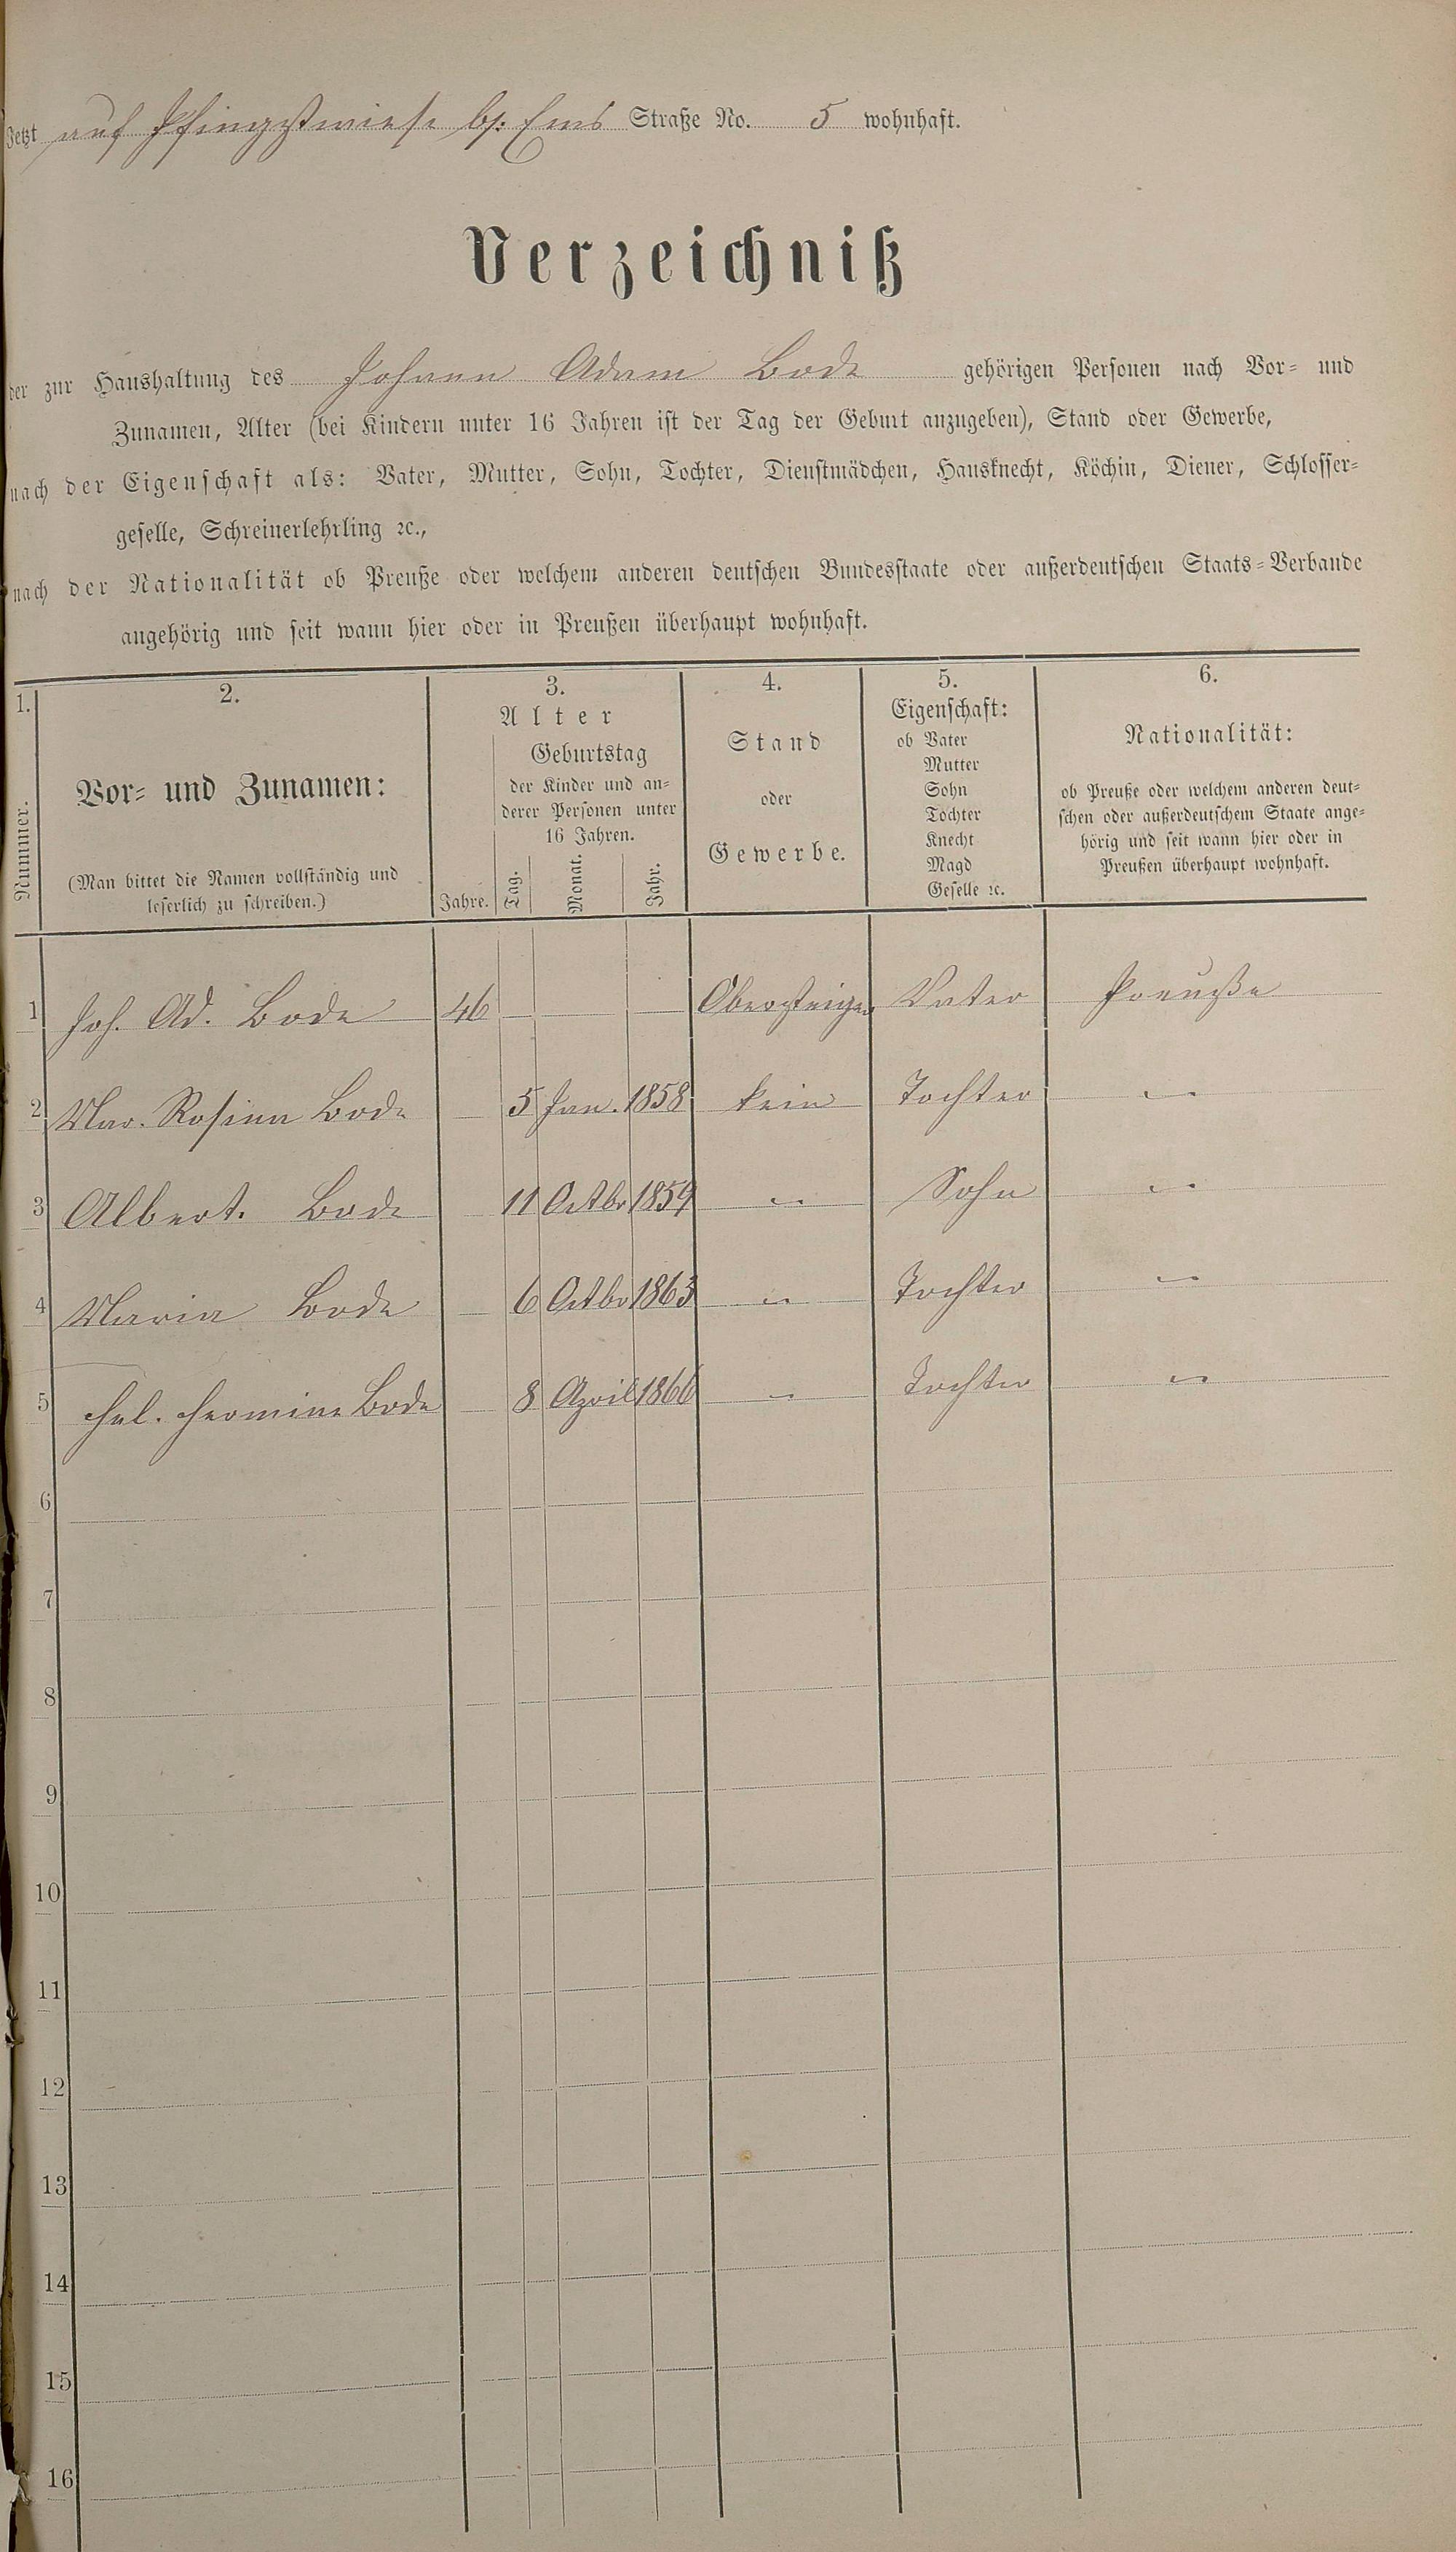 Jetzt auf Pfingstwiese b/: Ems Straße No. 5 wohnhaft.
Verzeichniß
der zur Haushaltung des Johann Adam Bode gehörigen Personen nach Vor- und
Zunamen, Alter (bei Kindern unter 16 Jahren ist der Tag der Geburt anzugeben), Stand oder Gewerbe,
nach der Eigenschaft als: Vater, Mutter, Sohn, Tochter, Dienstmädchen, Hausknecht, Köchin, Diener, Schlosser-
geselle, Schreinerlehrling ꝛc.,
nach der Nationalität ob Preuße oder welchem anderen deutschen Bundesstaate oder außerdeutschen Staats-Verbande
angehörig und seit wann hier oder in Preußen überhaupt wohnhaft.
1.
Nummer.
2.
Vor- und Zunamen:
(Man bittet die Namen vollständig und
leserlich zu schreiben.)
3.
Alter
Jahre.
Geburtstag
der Kinder und an-
derer Personen unter
16 Jahren.
Tag. Monat. Jahr.
4.
Stand
oder
Gewerbe.
5.
Eigenschaft:
ob Vater
Mutter
Sohn
Tochter
Knecht
Magd
Geselle ꝛc.
6.
Nationalität:
ob Preuße oder welchem anderen deut-
schen oder außerdeutschem Staate ange-
hörig und seit wann hier oder in
Preußen überhaupt wohnhaft.
1 Joh. Ad. Bode 46 Obersteiger Vater Preuße
2 Mar. Rosina Bode 5 Jan. 1858 kein Tochter "
3 Albert. Bode 11 Octbr 1859 " Sohn "
4 Maria Bode 6 Octbr 1863 " Tochter "
5 Hel. Hermine Bode 8 April 1866 " Tochter "
6
7
8
9
10
11
12
13
14
15
16